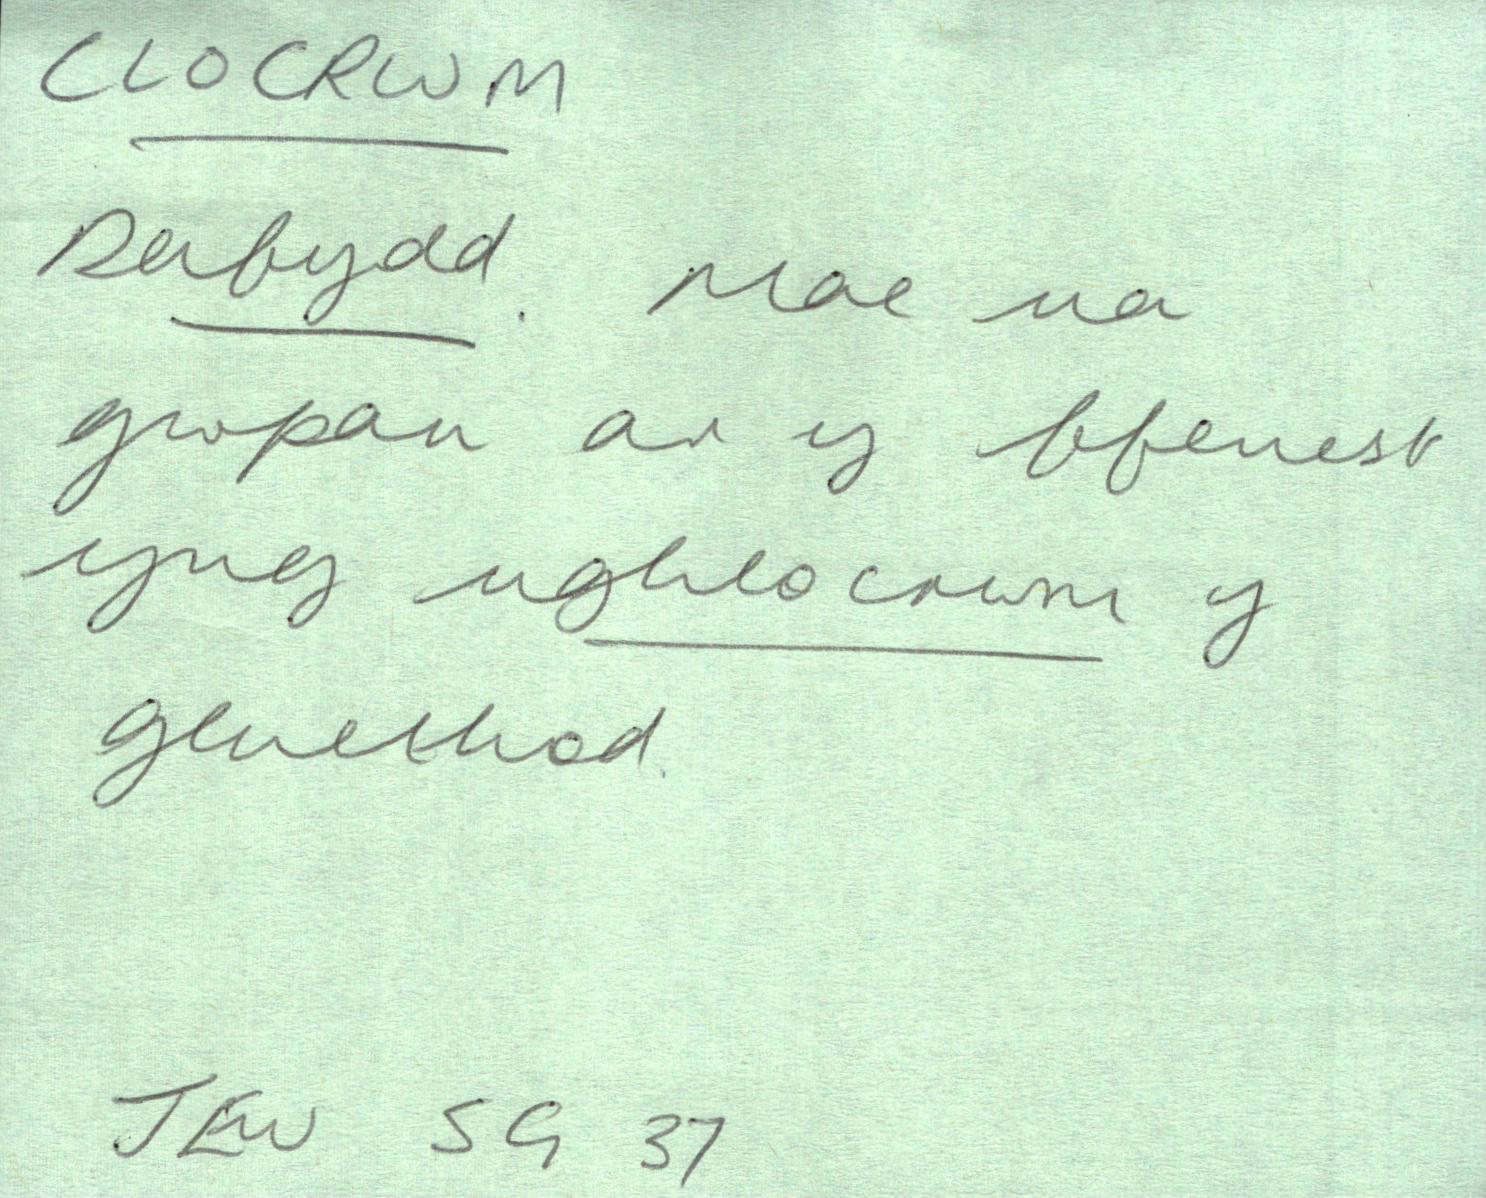 CLOCRWM
Derbydd. Mae na
gwpan ar y ffenest
yng nghlocrwm y
genethod.
JEW SG 37